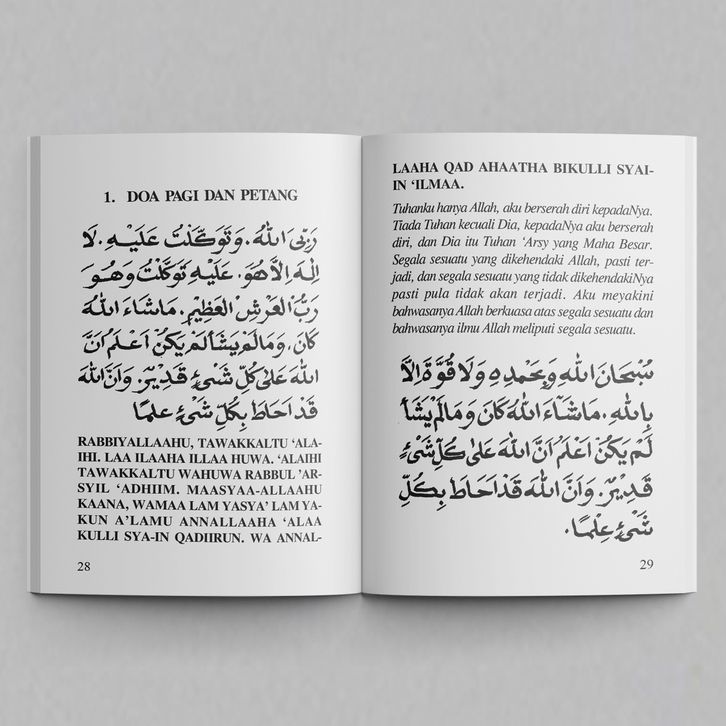 1. DOA PAGI DAN PETANG
رَبِّيَ اللّٰهُ. وَتَوَكَّلْتُ عَلَيْهِ. لَا
اِلٰهَ اِلَّا هُوَ. عَلَيْهِ تَوَكَّلْتُ وَهُوَ
رَبُّ الْعَرْشِ الْعَظِيْمِ. مَاشَاءَ اللّٰهُ
كَانَ. وَمَالَمْ يَشَأْ لَمْ يَكُنْ اَعْلَمُ اَنَّ
اللّٰهَ عَلٰى كُلِّ شَيْءٍ قَدِيْرٌ. وَاَنَّ اللّٰهَ
قَدْ اَحَاطَ بِكُلِّ شَيْءٍ عِلْمًا
RABBIYALLAAHU, TAWAKKALTU ‘ALA-
IHI. LAA ILAAHA ILLAA HUWA. ‘ALAIHI
TAWAKKALTU WAHUWA RABBUL ’AR-
SYIL ‘ADHIIM. MAASYAA-ALLAAHU
KAANA, WAMAA LAM YASYA’ LAM YA-
KUN A’LAMU ANNALLAAHA ‘ALAA
KULLI SYA-IN QADIIRUN. WA ANNAL-
28
LAAHA QAD AHAATHA BIKULLI SYAI-
IN ‘ILMAA.
Tuhanku hanya Allah, aku berserah diri kepadaNya.
Tiada Tuhan kecuali Dia, kepadaNya aku berserah
diri, dan Dia itu Tuhan ‘Arsy yang Maha Besar.
Segala sesuatu yang dikehendaki Allah, pasti ter-
jadi, dan segala sesuatu yang tidak dikehendakiNya
pasti pula tidak akan terjadi. Aku meyakini
bahwasanya Allah berkuasa atas segala sesuatu dan
bahwasanya ilmu Allah meliputi segala sesuatu.
سُبْحَانَ اللّٰهِ وَبِحَمْدِهِ وَلَا قُوَّةَ اِلَّا
بِاللّٰهِ. مَاشَاءَ اللّٰهُ كَانَ وَمَالَمْ يَشَأْ
لَمْ يَكُنْ اَعْلَمُ اَنَّ اللّٰهَ عَلٰى كُلِّ شَيْءٍ
قَدِيْرٌ. وَاَنَّ اللّٰهَ قَدْ اَحَاطَ بِكُلِّ
شَيْءٍ عِلْمًا.
29